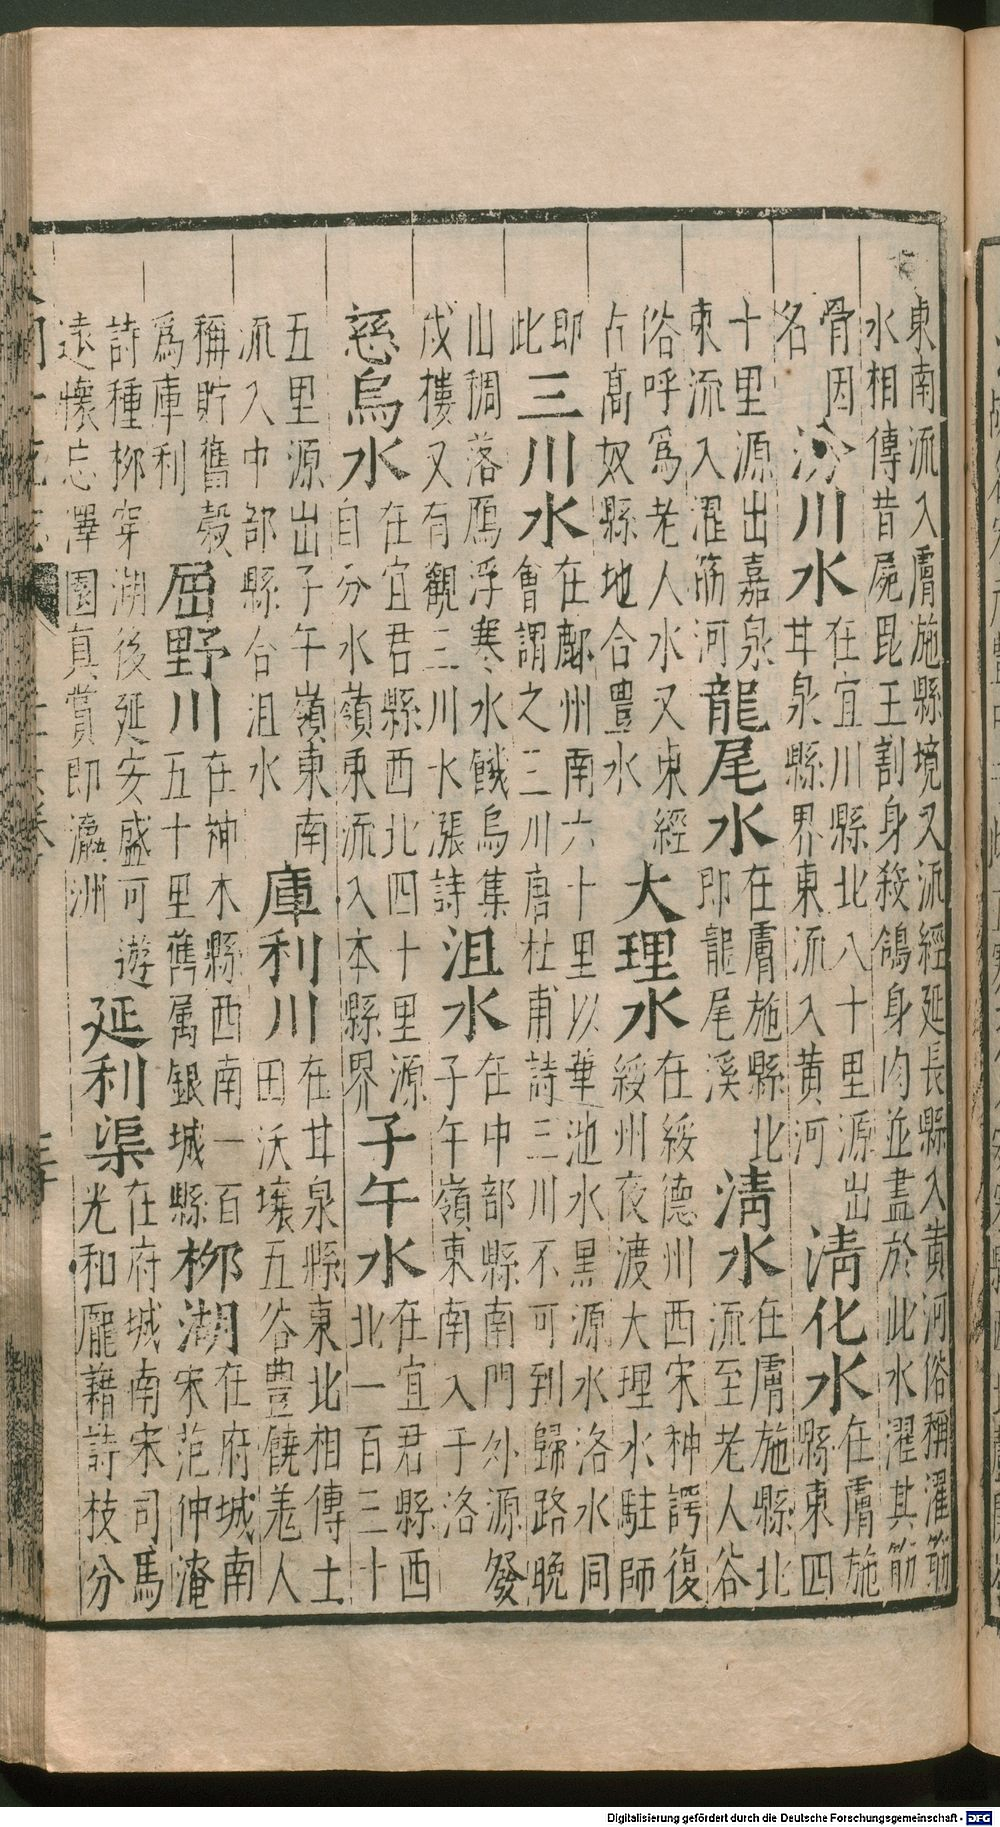 東南流入膚施縣境又流經延長縣入黃河俗稱濯筋
水相傳昔屍毘王割身殺鴿身肉並盡於此水濯其筋
骨因
名
汾川水
在宜川縣北八十里源出
甘泉縣界東流入黃河
清化水
在膚施
縣東四
十里源出嘉泉
東流入濯筋河
龍尾水
在膚施縣北
即龍尾溪
清水
在膚施縣北
流至老人谷
俗呼爲老人水又東經
古高奴縣地合豐水
大理水
在綏德州西宋种諤復
綏州夜渡大理水駐師
即
此
三川水
在鄜州南六十里以華池水黑源水洛水同
會謂之三川唐杜甫詩三川不可到歸路晚
山稠落鴈浮寒水饑烏集
戍樓又有觀三川水漲詩
沮水
在中部縣南門外源發
子午嶺東南入于洛
慈烏水
在宜君縣西北四十里源
自分水嶺東流入本縣界
子午水
在宜君縣西
北一百三十
五里源出子午嶺東南
流入中部縣合沮水
庫利川
在甘泉縣東北相傳土
田沃壤五谷豐饒羗人
稱貯舊穀
爲庫利
屈野川
在神木縣西南一百
五十里舊属銀城縣
柳湖
在府城南
宋范仲淹
詩種柳穿湖後延安盛可遊
遠懷忘澤園真賞即瀛洲
延利渠
在府城南宋司馬
光和龐籍詩枝分
Digitalisierung gefördert durch die Deutsche Forschungsgemeinschaft - DFG